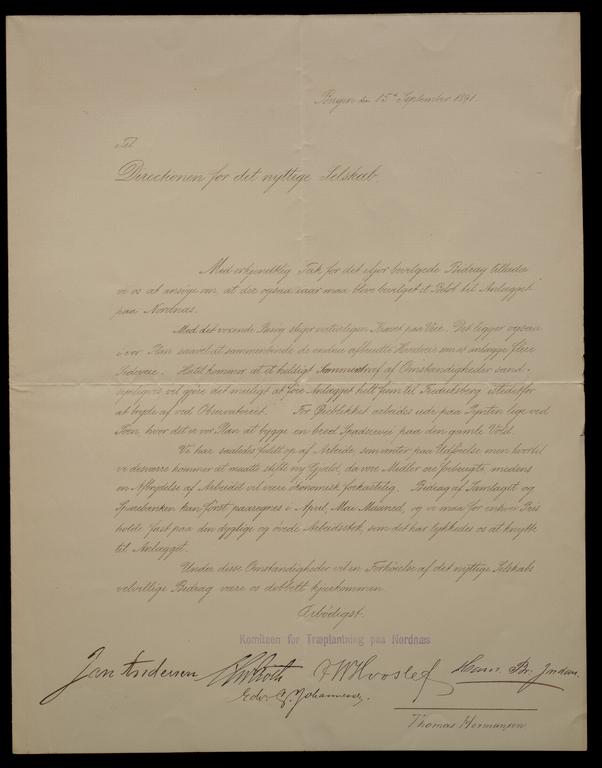 Bergen den 15de September 1891.
Til
Directionen for det nyttige Selskab.
Med erkjendtlig Tak for det ifjor bevilgede Bidrag tillader
vi os at ansöge om, at der ogsaa iaar maa blive bevilget et Belöb til Anlægget
paa Nordnæs.
Med det voxende Besög stiger naturligen Kravet paa Veie. Det ligger ogsaa
i vor Plan saavel at sammenbinde de endnu afbrudte Hovedveie som at anlægge flere
Sideveie. Hertil kommer at et heldigt Sammentræf af Omstændigheder sand-
synligvis vil gjöre det muligt at före Anlægget helt frem til Fredriksberg istedetfor
at bryde af ved Observatoriet. For Öieblikket arbeides ude paa Pynten lige ved
Söen, hvor det er vor Plan at bygge en bred Spadservei paa den gamle Vold.
Vi har saaledes fuldt op af Arbeide, som venter paa Udförelse men hvortil
vi desværre kommer at maatte stifte ny Gjæld, da vore Midler ere forbrugte, medens
en Afbrydelse af Arbeidet vil være ökonomisk forkastelig. Bidrag af Samlaget og
Sparebanken kan först paaregnes i April, Mai Maaned, og vi maa for enhver Pris
holde fast paa den dygtige og övede Arbeidsstok, som det har lykkedes os at knytte
til Anlægget.
Under disse Omstændigheder vil en Forhöielse af det nyttige Selskabs
velvillige Bidrag være os dobbelt kjærkommen.
Ærbödigst.
Komiteen for Træplantning paa Nordnæs
Jan Andersen FW Hvoslef
Edv. G. Johannesen
Thomas Hermansen